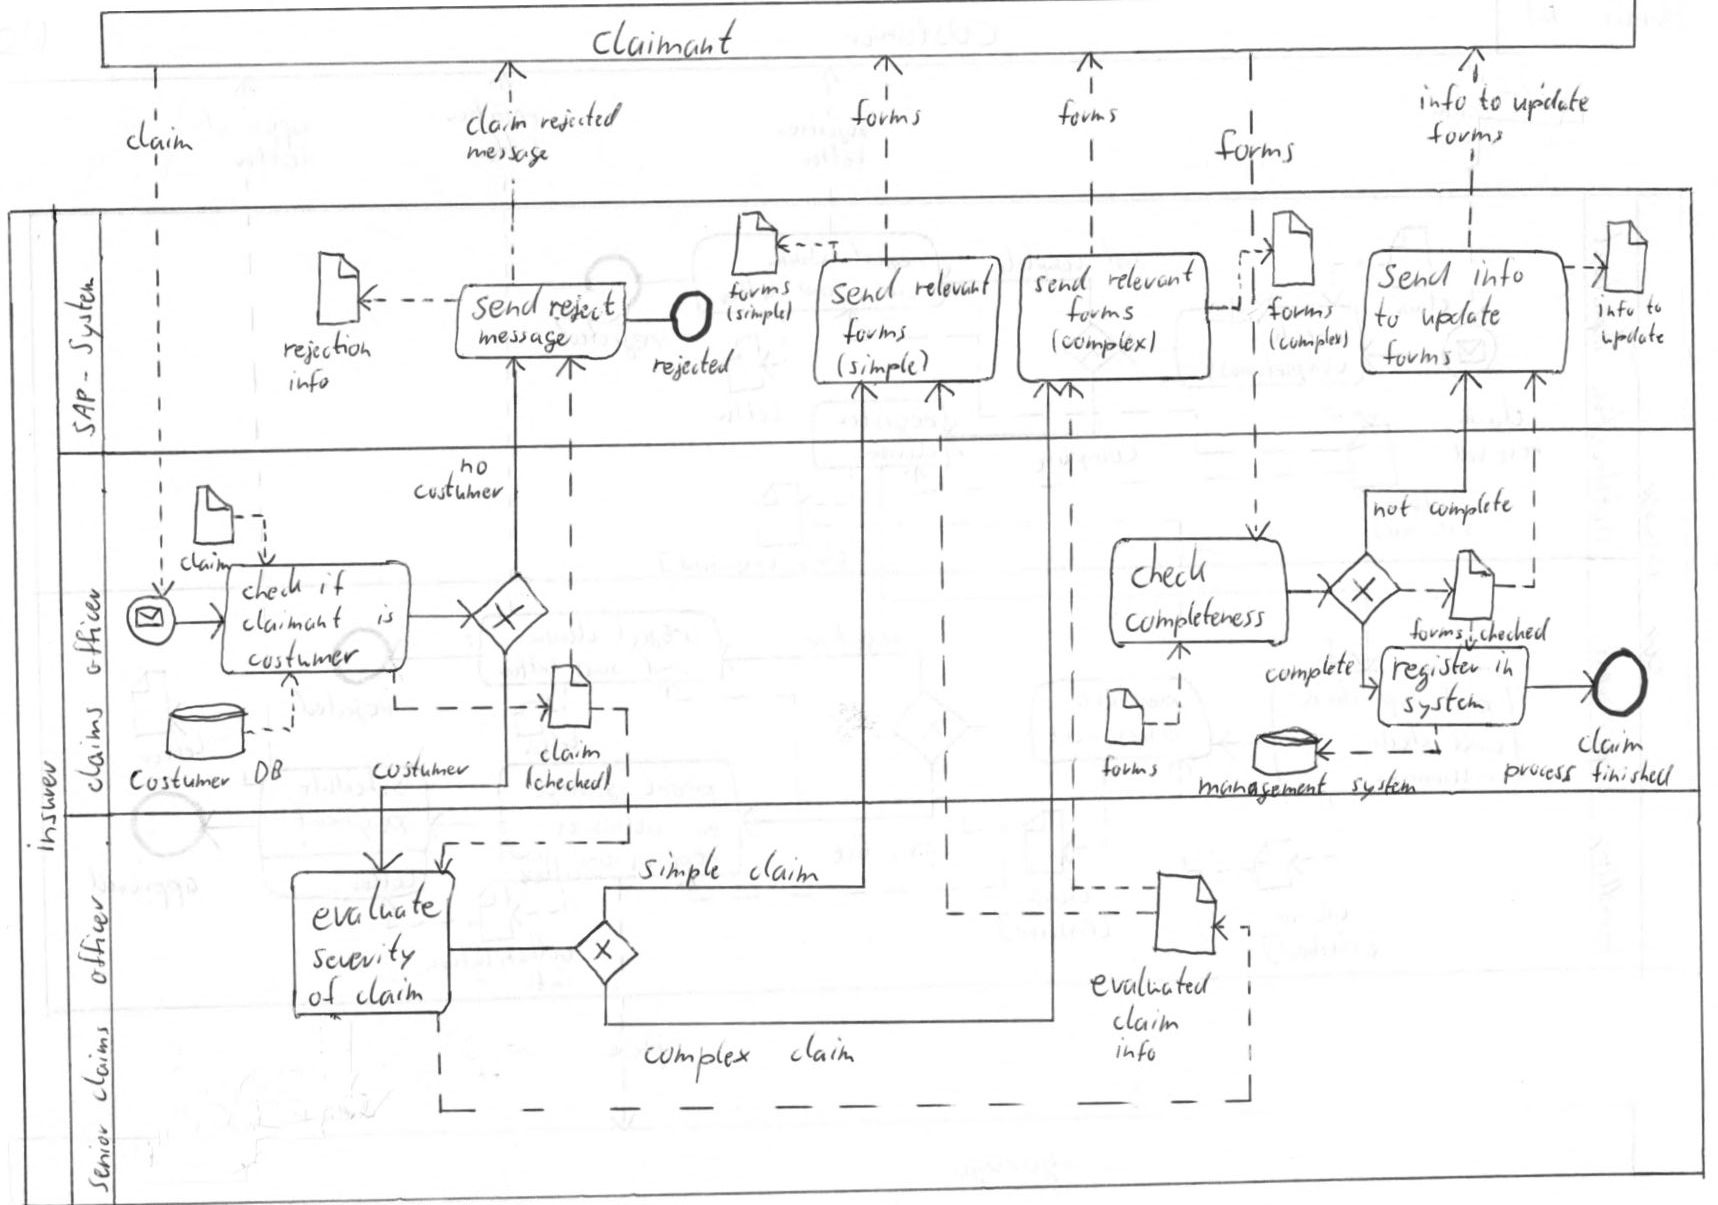 claimant
claim
claim rejected
message
forms
forms
forms
info to update
forms
insurer
SAP-System
rejection
info
send reject
message
rejected
forms
(simple)
send relevant
forms
(simple)
send relevant
forms
(complex)
forms
(complex)
send info
to update
forms
info to
update
claims officer
claim
check if
claimant is
costumer
Costumer DB
no
costumer
costumer
claim
(checked)
check
completeness
forms
not complete
forms checked
complete
register in
system
management system
claim
process finished
senior claims officer
evaluate
severity
of claim
simple claim
complex claim
evaluated
claim
info